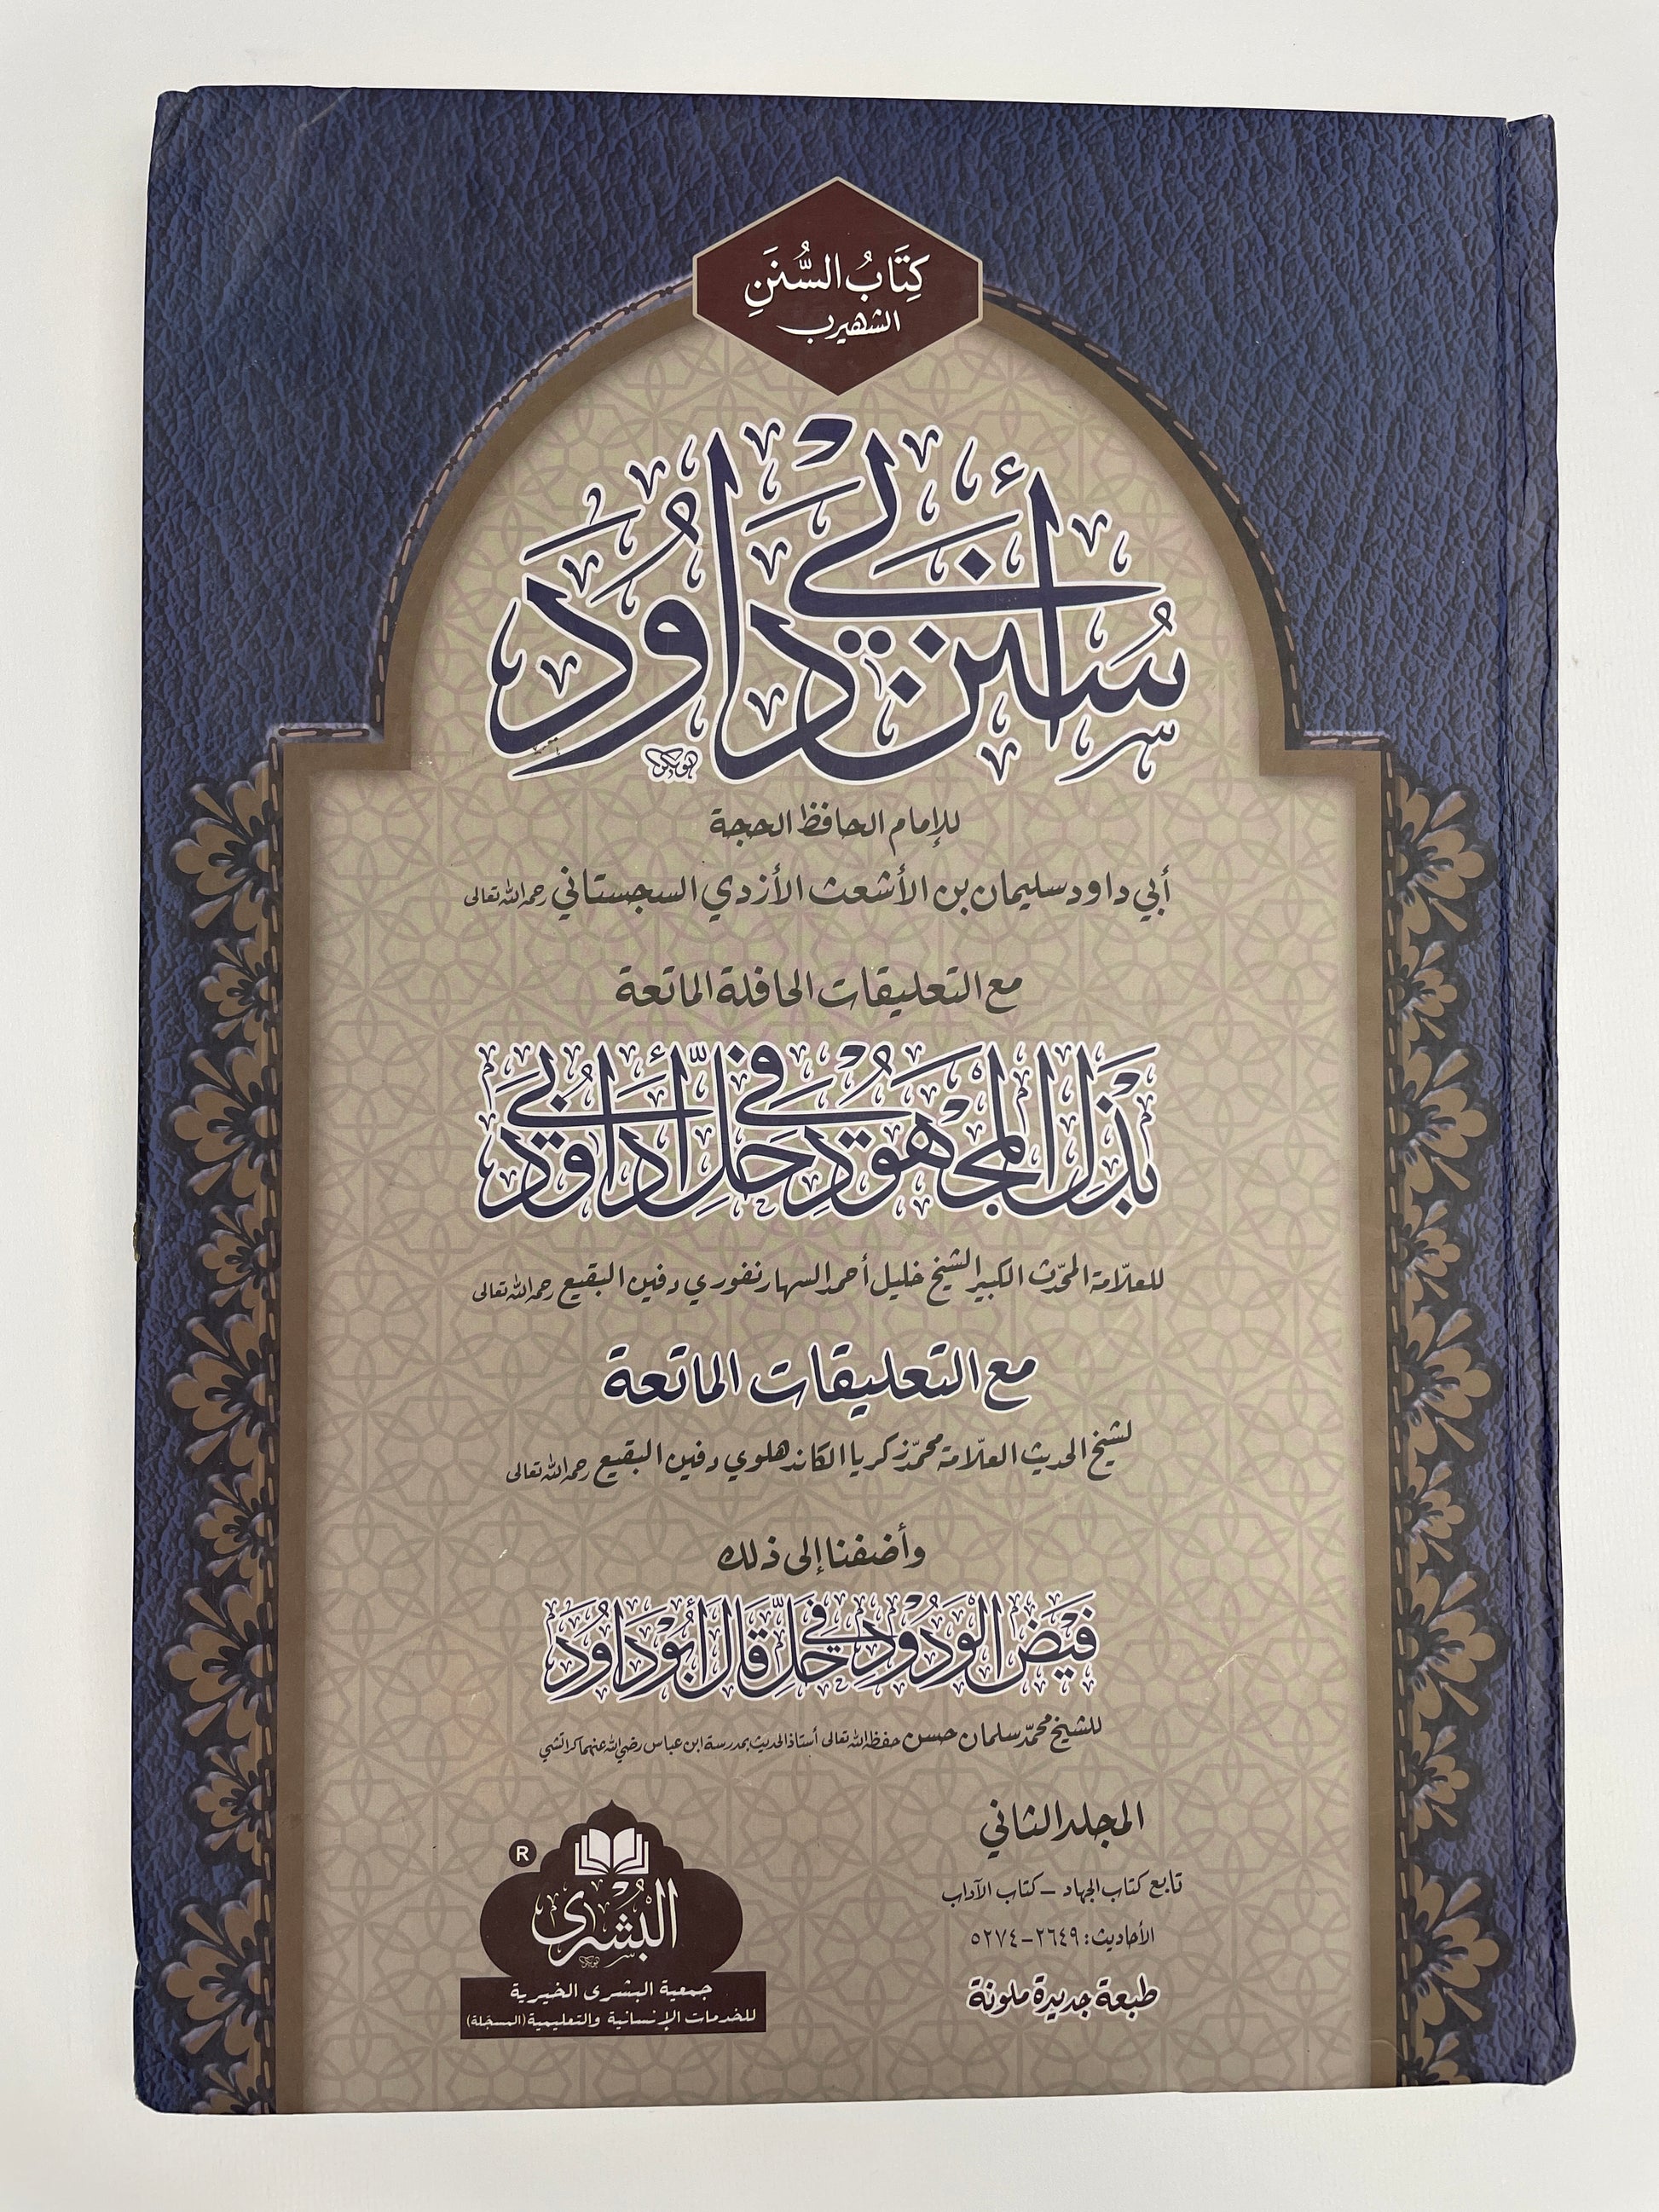 كِتَابُ السُّنَنِ
الشهير ب
سُنَن أَبِي دَاوُدَ
للإمام الحافظ الحجة
أبي داود سليمان بن الأشعث الأزدي السجستاني رحمه الله تعالى
مع التعليقات الحافلة الماتعة
بَذْلُ الْمَجْهُوْدِ فِي حَلِّ أَبِي دَاوُدَ
للعلّامة المحدّث الكبير الشيخ خليل أحمد السهارنفوري دفين البقيع رحمه الله تعالى
مع التعليقات الماتعة
لشيخ الحديث العلّامة محمّد زكريا الكاندهلوي دفين البقيع رحمه الله تعالى
وأضفنا إلى ذلك
فَيْضُ الْوَدُوْدِ فِي حَلِّ قَالَ أَبُوْ دَاوُدَ
للشيخ محمّد سلمان حسن حفظه الله تعالى أستاذ الحديث بمدرسة ابن عباس رضي الله عنهما كراتشي
المجلد الثاني
تابع كتاب الجهاد – كتاب الآداب
الأحاديث: ٢٦٤٩-٥٢٧٤
طبعة جديدة ملونة
R
البُشرى
جمعية البشرى الخيرية
للخدمات الإنسانية والتعليمية (المسجّلة)